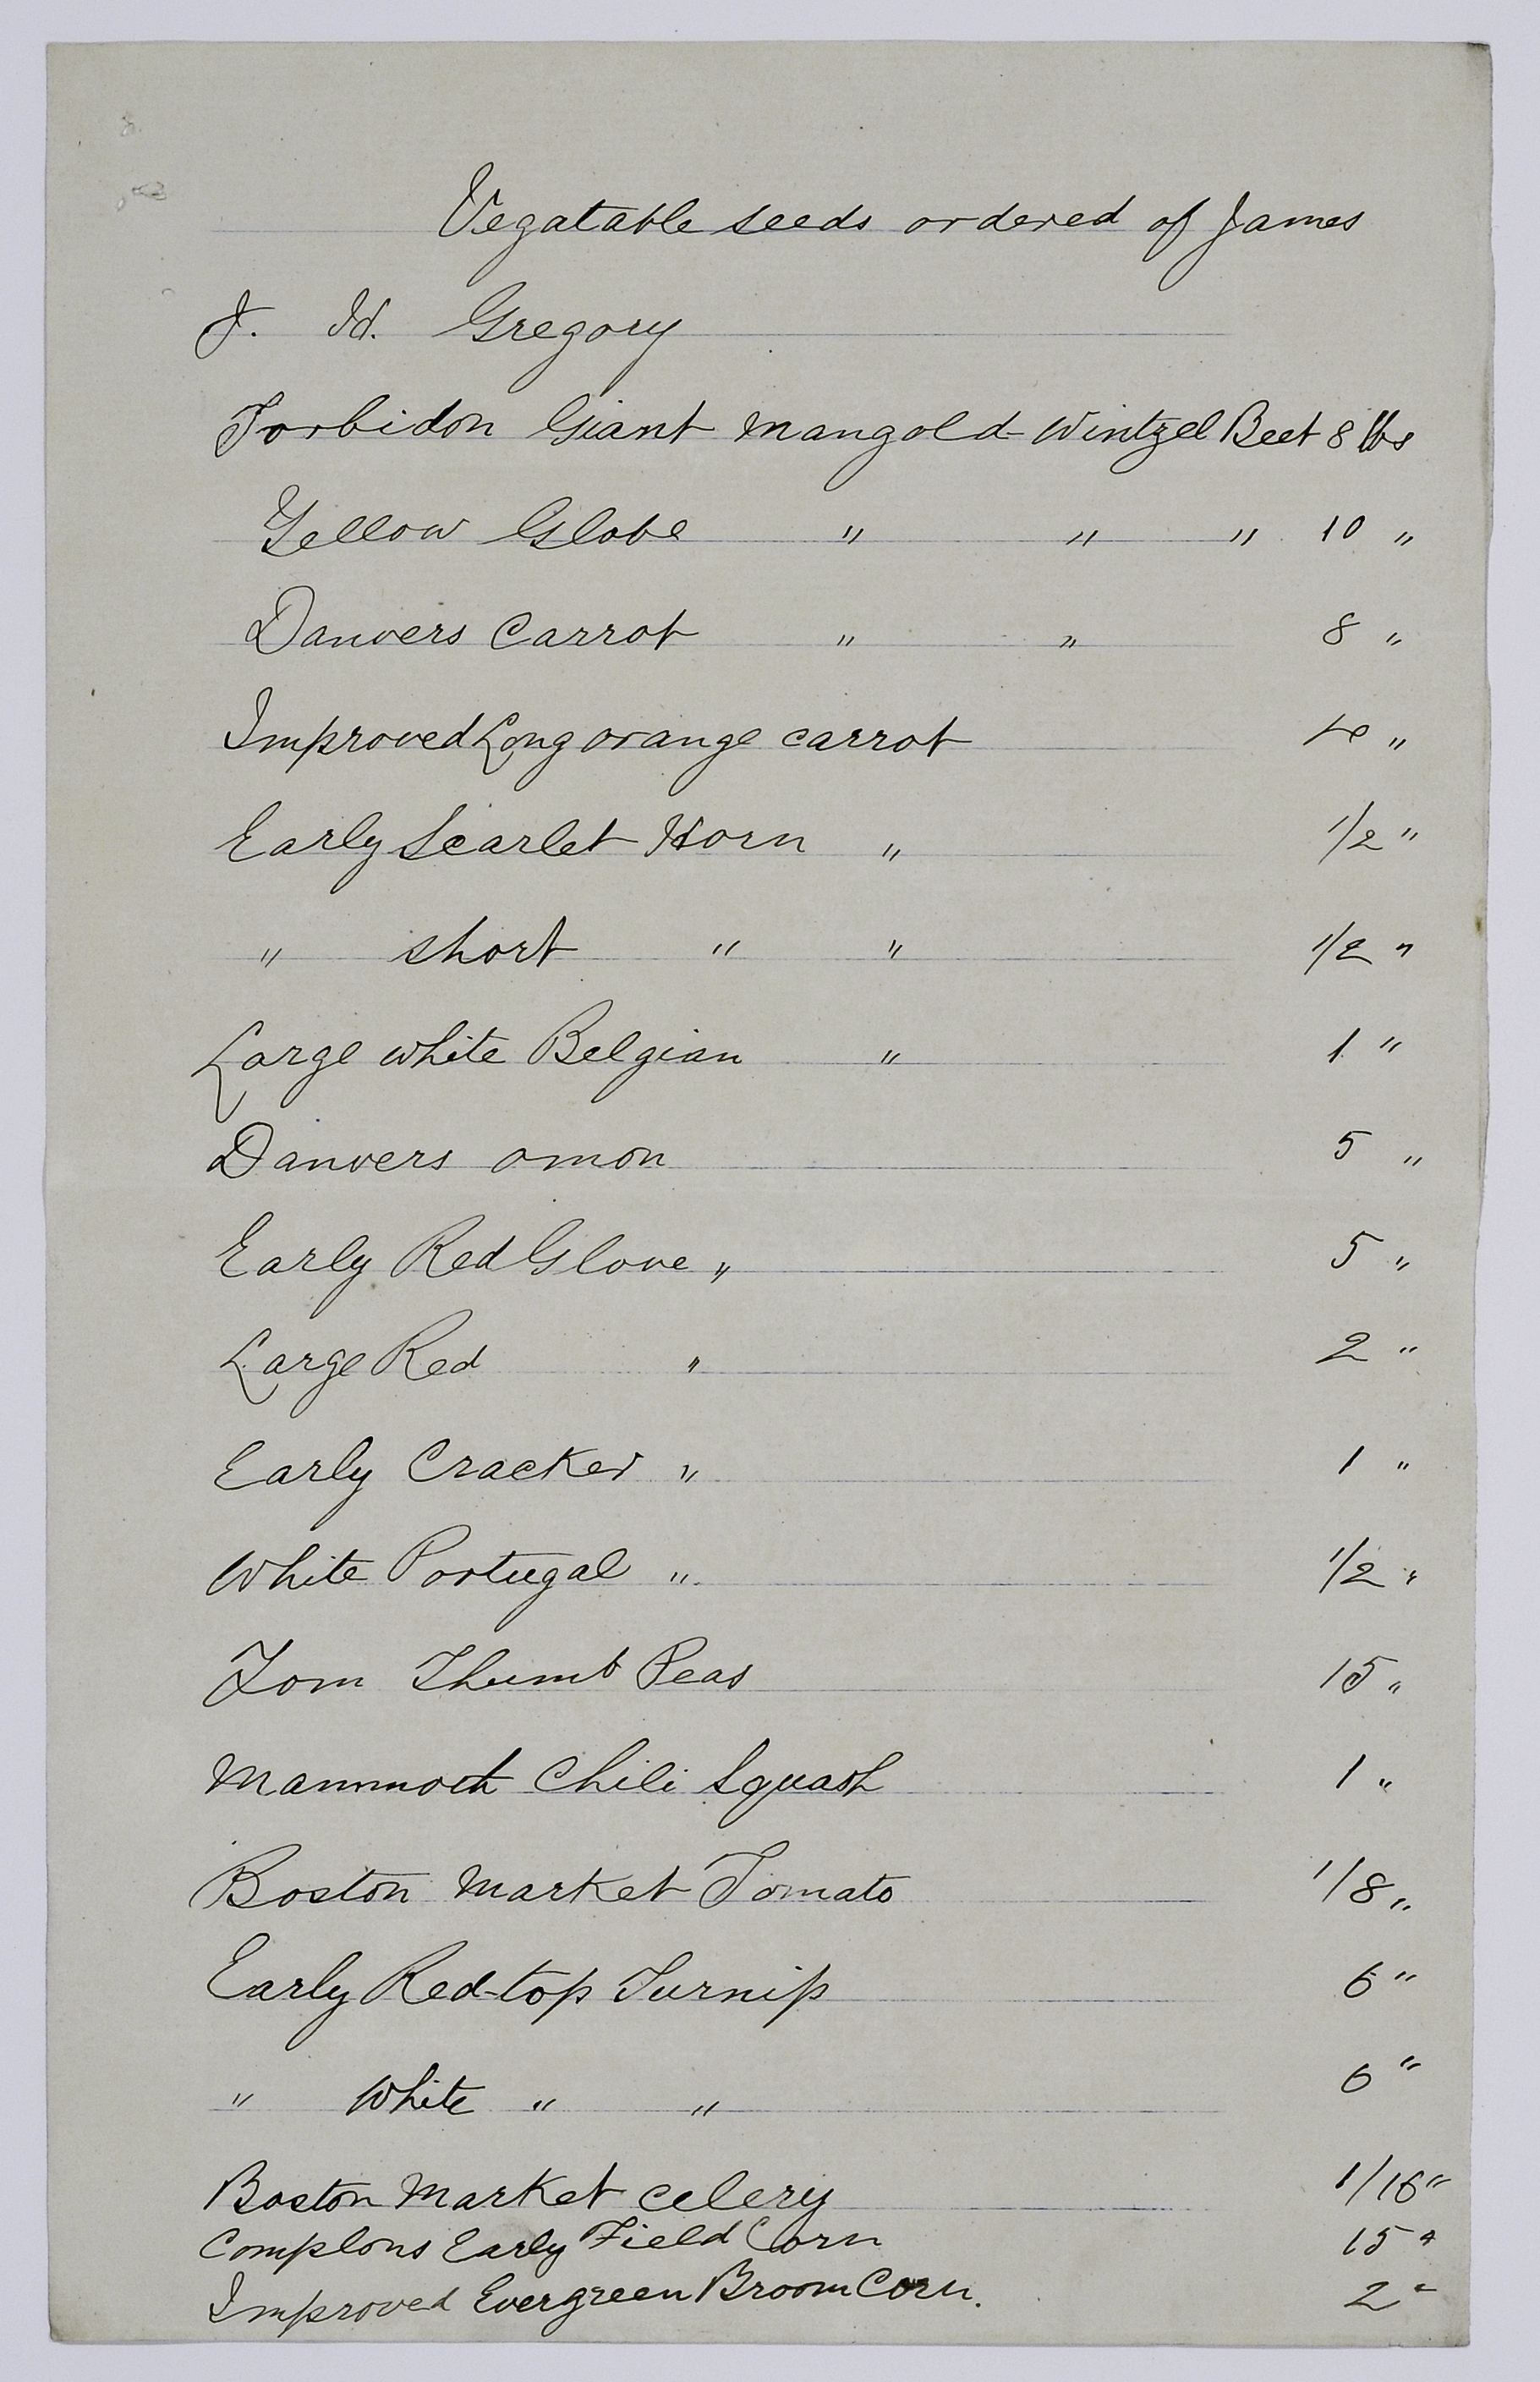 Vegatable seeds ordered of James
J. H. Gregory
Forbidon Giant Mangold-Wintzel Beet 8 lbs
Yellow Globe " " " 10 "
Danvers Carrot " " 8 "
Improved Long orange carrot 4 "
Early Scarlet Horn " 1/2 "
" short " " 1/2 "
Large white Belgian " 1 "
Danvers onion 5 "
Early Red Glove " 5 "
Large Red " 2 "
Early Cracker " 1 "
White Portugal " 1/2 "
Tom Thumb Peas 15 "
Mammoth Chili Squash 1 "
Boston Market Tomato 1/8 "
Early Red-top Turnip 6 "
" White " " 6 "
Boston Market celery 1/16 "
Complons Early Field Corn 15 "
Improved Evergreen Broom Corn. 2 "